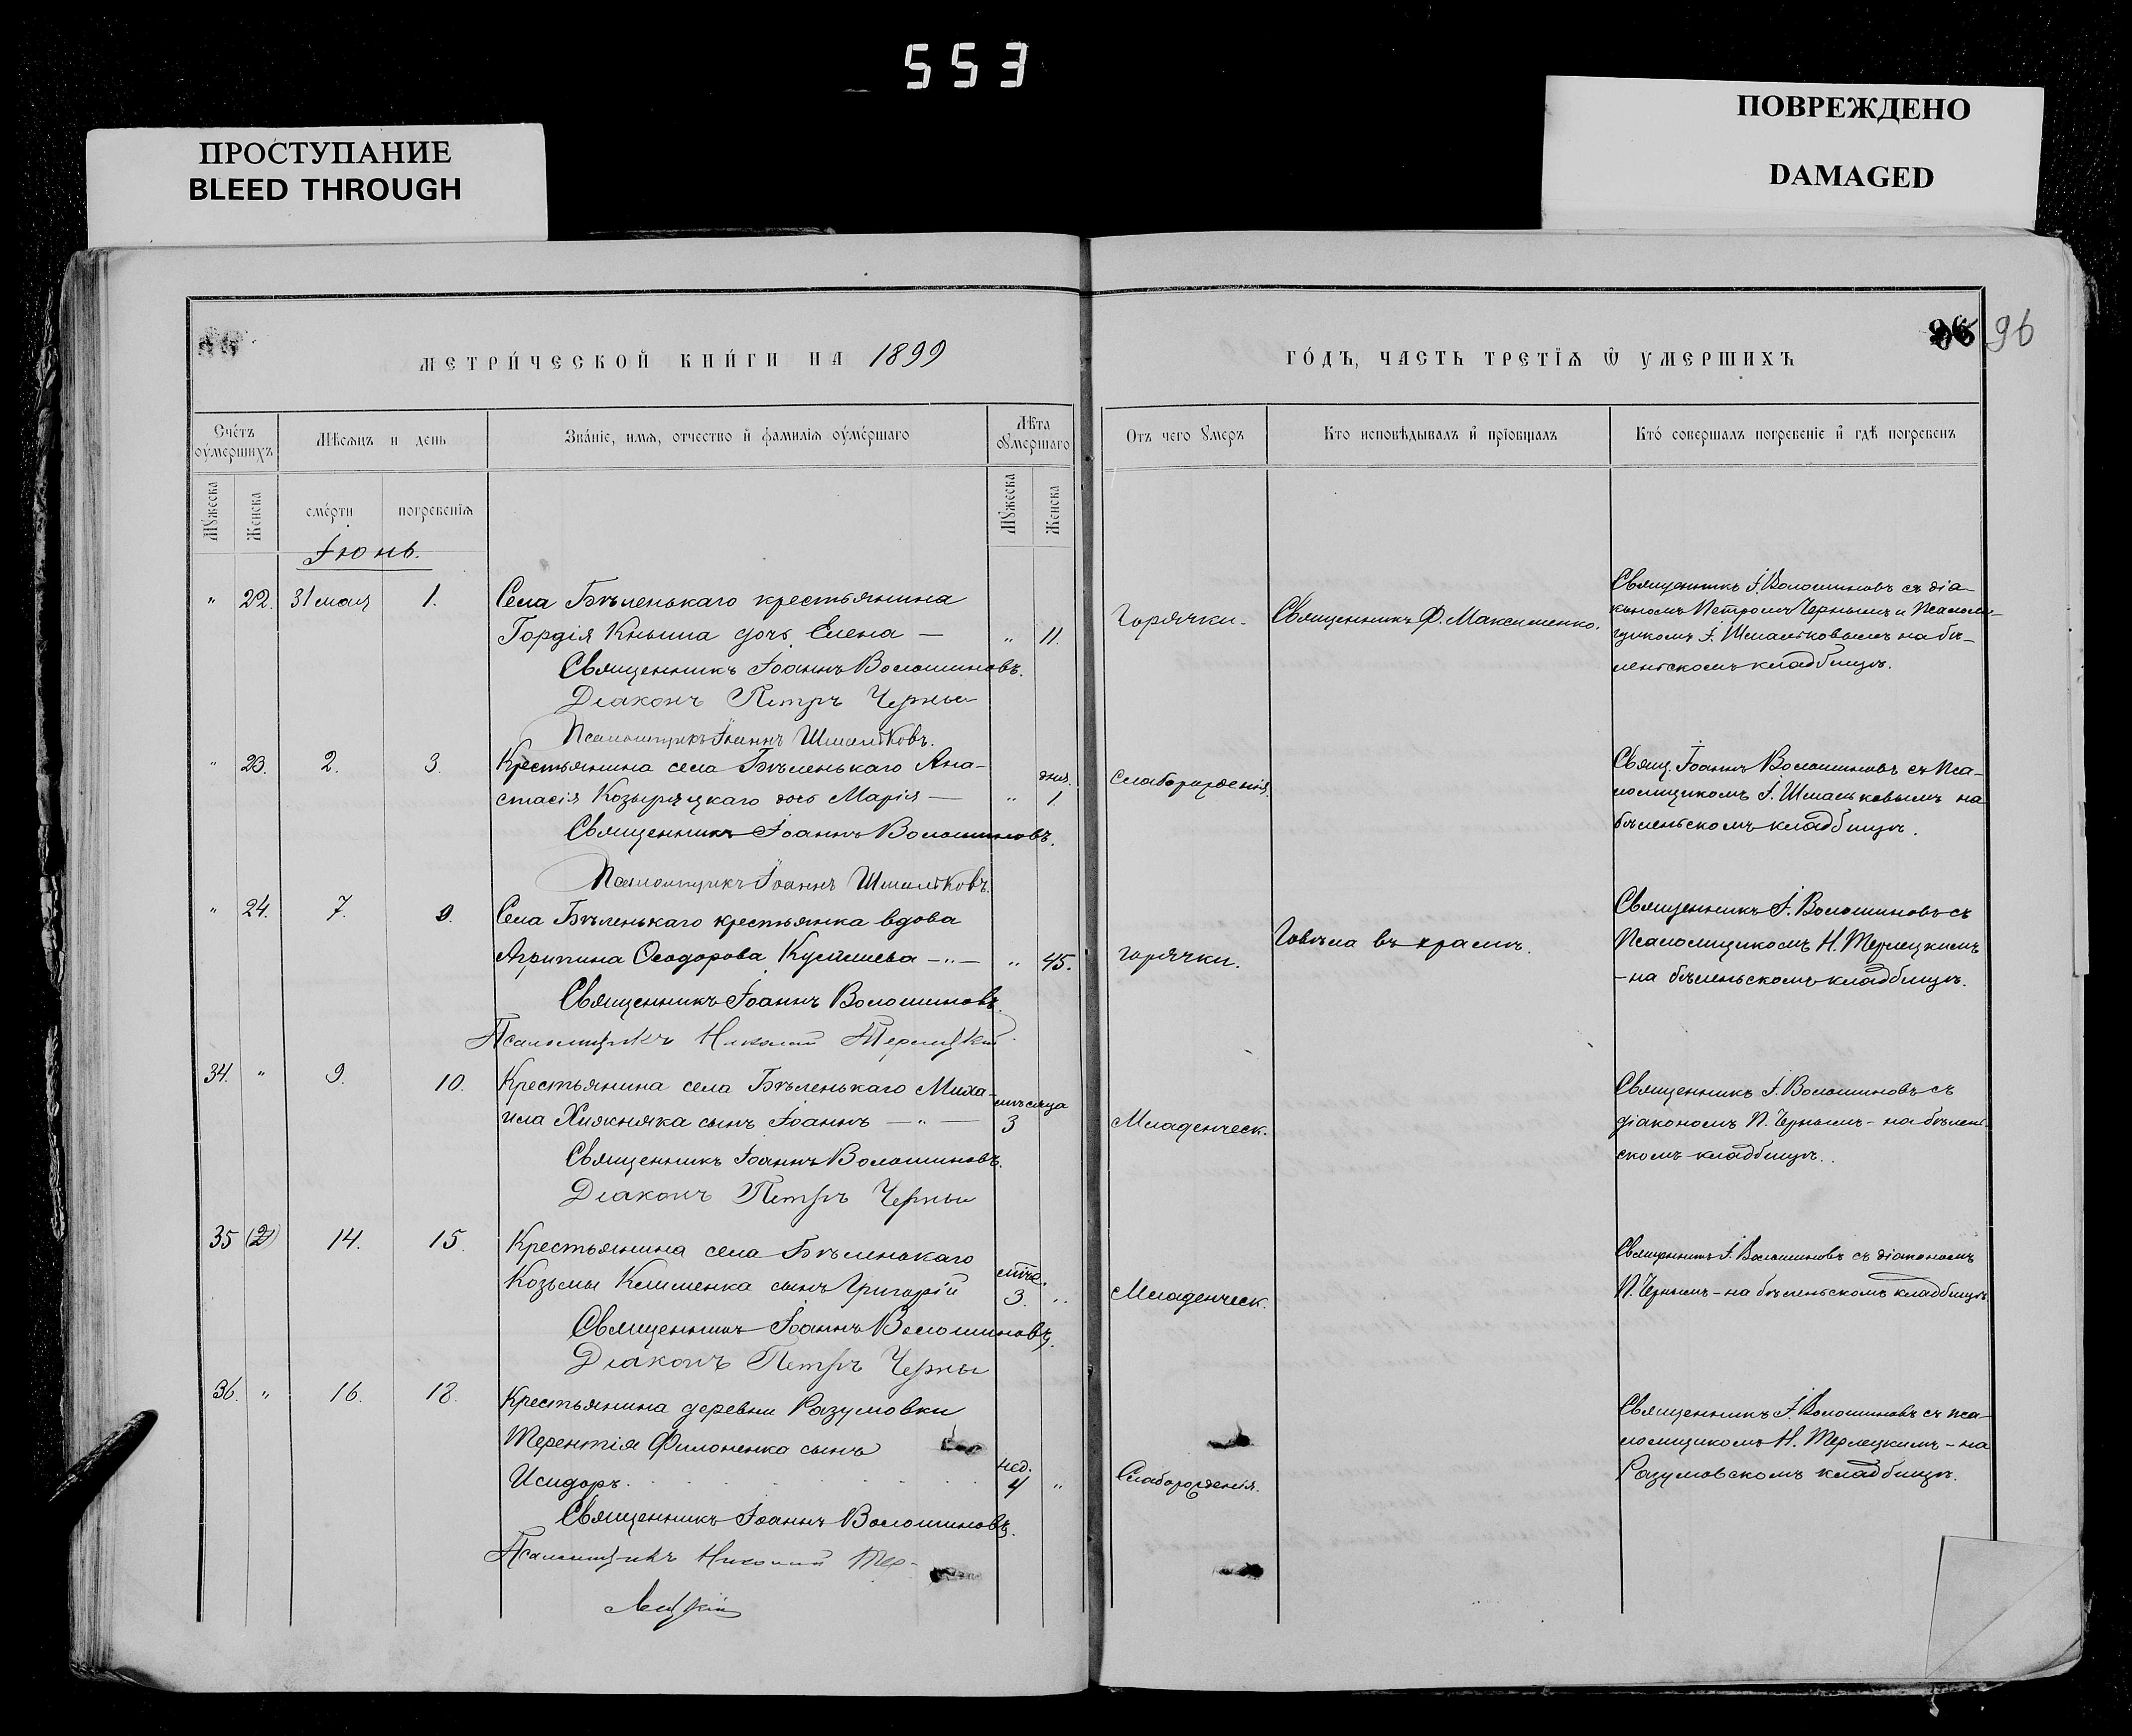 553
ПРОСТУПАНИЕ
BLEED THROUGH
ПОВРЕЖДЕНО
DAMAGED
МЕТРИ́ЧЕСКОЙ КНИ́ГИ НА 1899
ГО́ДЪ, ЧАСТЬ ТРЕТІѦ Ѽ УМЕРШИХЪ
96 96
Сче́тъ оу́мершихъ
Мѣсѧцъ и день
Зва́ніе, имѧ, отчество и҆ фамиліѧ оу҆ме́ршаго
Лѣта оу҆мершаго
Отъ чего ᲂумеръ
Кто исповѣдывалъ и҆ прїобщалъ
Кто́ совершалъ погребеніе и҆ гдѣ погребенъ
Мꙋжеска
Женска
сме́рти
погребенїѧ
Мꙋжеска
Женска
Іюнь.
" 22. 31 мая 1.
Села Бѣленькаго крестьянина
Гордія Кныша дочь Елена — " 11.
Священникъ Іоаннъ Волошиновъ.
Діаконъ Петръ Черный
Псаломщикъ Іоаннъ Шмальковъ.
Горячки.
Священникъ Ф. Максименко.
Священникъ І. Волошиновъ съ діа-
кономъ Петромъ Чернымъ и Псалом-
щикомъ І. Шмальковымъ на бѣ-
леньскомъ кладбищѣ.
" 23. 2. 3.
Крестьянина села Бѣленькаго Ана-
дня.
стасія Козырицкаго дочь Марія — " 1
Священникъ Іоаннъ Волошиновъ.
Псаломщикъ Іоаннъ Шмальковъ.
Слаборожденія.
Свящ. Іоаннъ Волошиновъ съ Пса-
ломщикомъ І. Шмальковымъ на
бѣленьскомъ кладбищѣ.
" 24. 7. 9.
Села Бѣленькаго крестьянка вдова
Агрипина Ѳеодорова — " — " 45.
Священникъ Іоаннъ Волошиновъ.
Псаломщикъ Николай Терлецкій.
горячки.
Говѣла въ храмѣ.
Священникъ І. Волошиновъ съ
Псаломщикомъ Н. Терлецкимъ
— на бѣленьскомъ кладбищѣ.
34. " 9. 10.
Крестьянина села Бѣленькаго Миха-
мѣсяца
ила Хижняка сынъ Іоаннъ — " — 3
Священникъ Іоаннъ Волошиновъ.
Діаконъ Петръ Черный
Младенческ.
Священникъ І. Волошиновъ съ
діакономъ П. Чернымъ - на бѣлень-
скомъ кладбищѣ.
35 (2) 14. 15.
Крестьянина села Бѣленькаго
Козьмы Клименка сынъ Григорій 3. "
Священникъ Іоаннъ Волошиновъ.
Діаконъ Петръ Черный
Младенческ.
Священникъ І. Волошиновъ съ діакономъ
П. Чернымъ - на бѣленьскомъ кладбищѣ
36. " 16. 18.
Крестьянина деревни Разумовки
Терентія Филоненка сынъ
нед.
Исидоръ. 4 "
Священникъ Іоаннъ Волошиновъ.
Псаломщикъ Николай Тер-
лецкій
Слаборожденія.
Священникъ І. Волошиновъ съ пса-
ломщикомъ Н. Терлецкимъ - на
Разумовскомъ кладбищѣ.